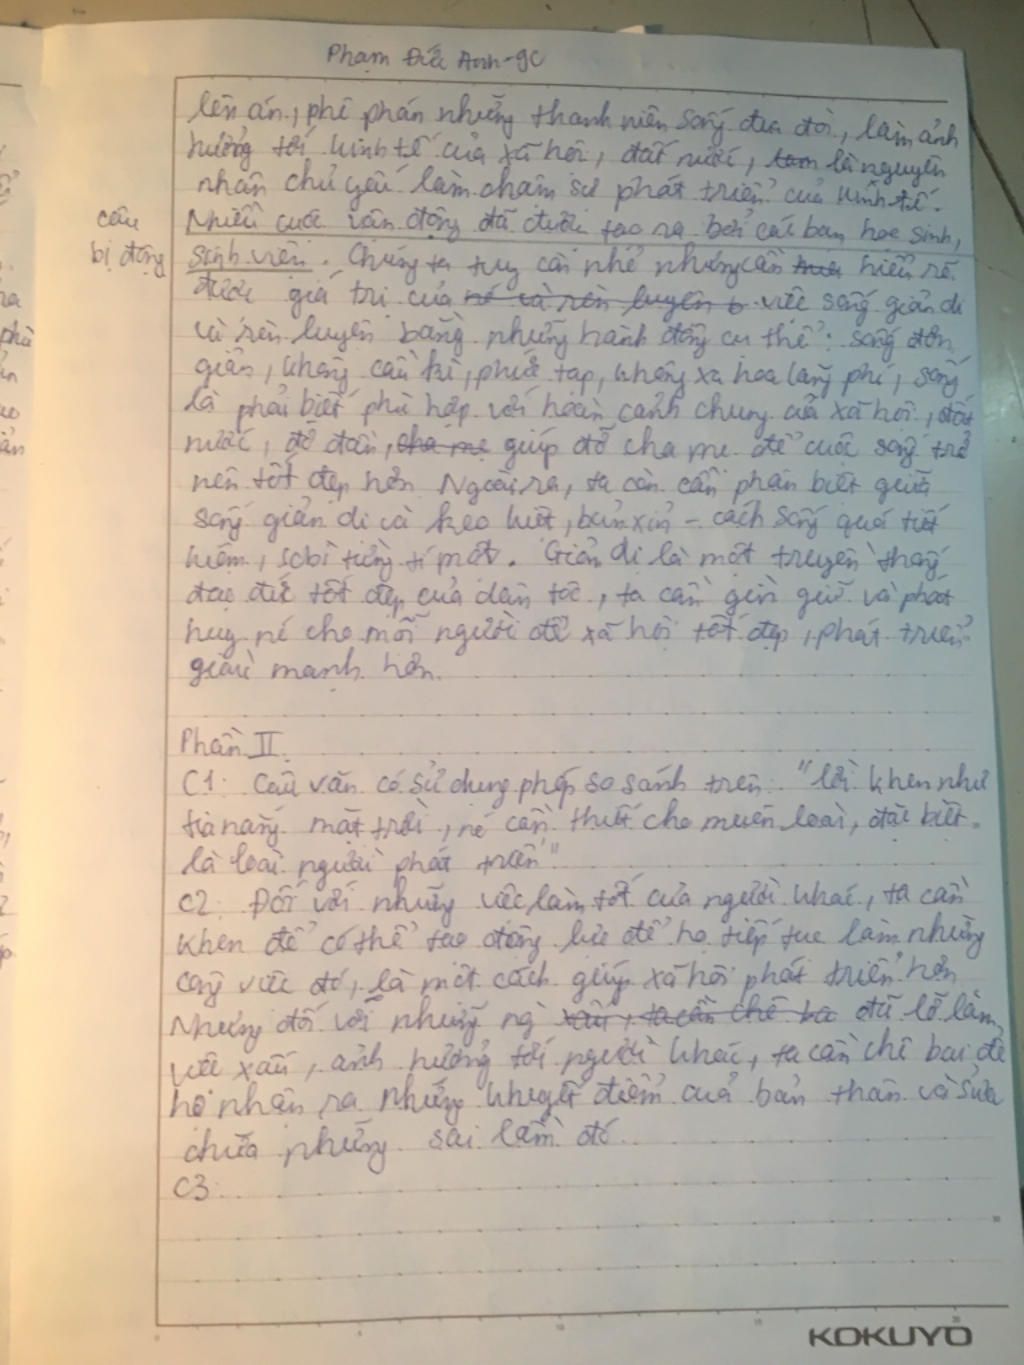 Phạm Đức Anh - 9C
lên án, phê phán những thanh niên sống đua đòi, làm ảnh
hưởng tới kinh tế của xã hội, đất nước, làm là nguyên
nhân chủ yếu làm chậm sự phát triển của kinh tế.
Nhiều cuộc vận động đã được tạo ra bởi các bạn học sinh,
câu
bị động
sinh viên. Chúng ta tuy còn nhỏ nhưng cần hiểu rõ
được giá trị của nó và rèn luyện b việc sống giản dị
và rèn luyện bằng những hành động cụ thể: sống đơn
giản, không cầu kì, phức tạp, không xa hoa lãng phí, sống
là phải biết phù hợp với hoàn cảnh chung của xã hội, đất
nước, đỡ đần, cha mẹ giúp đỡ cha mẹ để cuộc sống trở
nên tốt đẹp hơn. Ngoài ra, ta còn cần phân biệt giữa
sống giản dị và keo kiệt, bủn xỉn - cách sống quá tiết
kiệm, so bì từng tí một. Giản dị là một truyền thống
đạo đức tốt đẹp của dân tộc, ta cần gìn giữ và phát
huy nó cho mỗi người để xã hội tốt đẹp, phát triển
giàu mạnh hơn.
Phần II.
C1: Câu văn có sử dụng phép so sánh trên: "lời khen như
tia nắng mặt trời, nó cần thiết cho muôn loài, đặc biệt
là loài người phát triển"
C2: Đối với những việc làm tốt của người khác, ta cần
khen để có thể tạo động lực để họ tiếp tục làm những
công việc đó, là một cách giúp xã hội phát triển hơn
Nhưng đối với những ng xấu, ta cần chê ba đã lỡ làm
việc xấu, ảnh hưởng tới người khác, ta cần chê bai để
họ nhận ra những khuyết điểm của bản thân và sửa
chữa những sai lầm đó.
C3:
KOKUYO